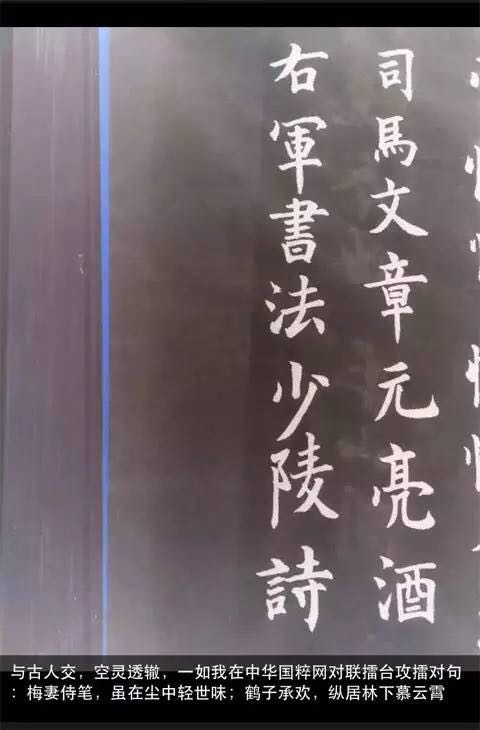 司馬文章元亮酒
右軍書法少陵詩
与古人交，空灵透辙，一如我在中华国粹网对联擂台攻擂对句
：梅妻侍笔，虽在尘中轻世味；鹤子承欢，纵居林下慕云霄